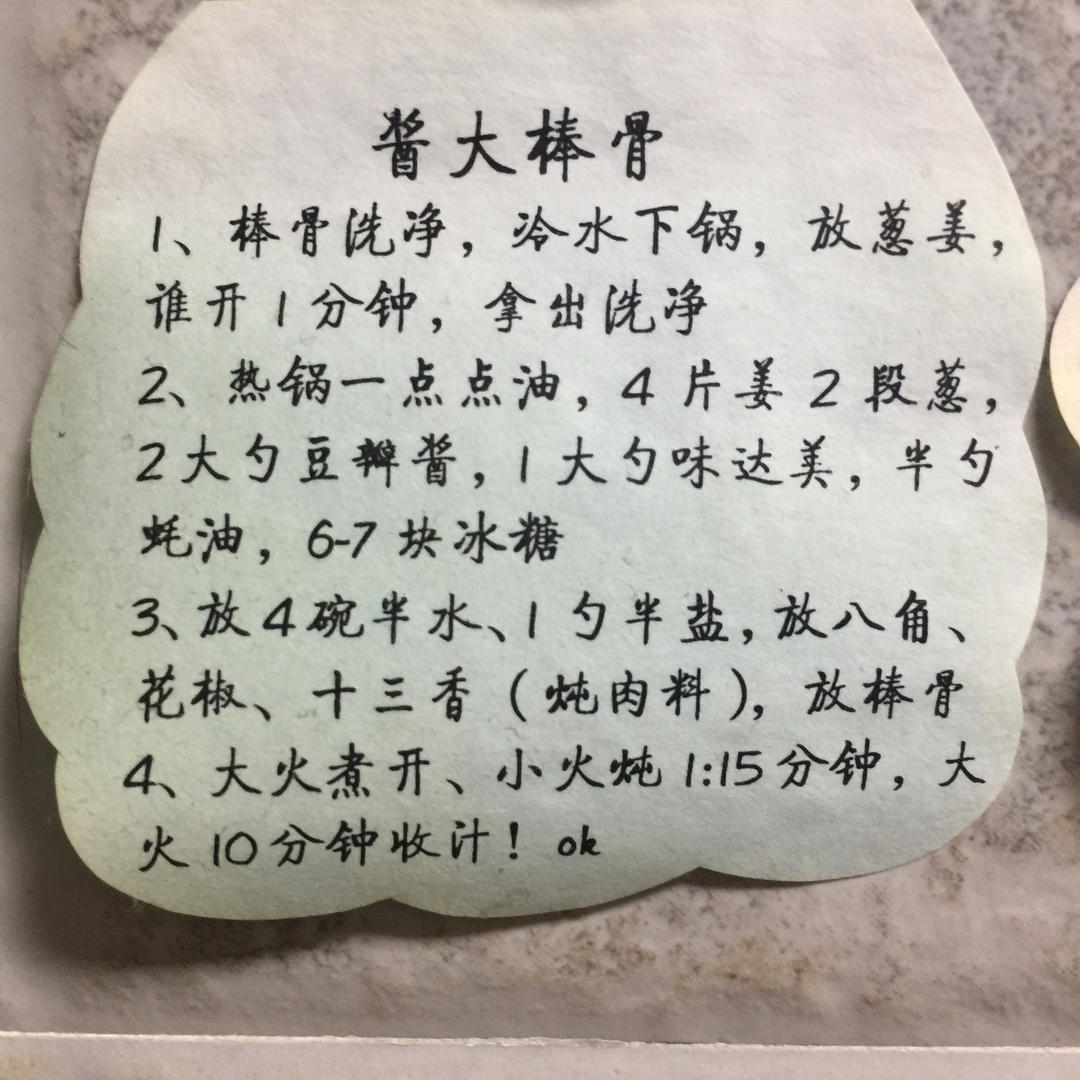 酱大棒骨
1、棒骨洗净，冷水下锅，放葱姜，
谁开1分钟，拿出洗净
2、热锅一点点油，4片姜2段葱，
2大勺豆瓣酱，1大勺味达美，半勺
蚝油，6-7块冰糖
3、放4碗半水、1勺半盐，放八角、
花椒、十三香（炖肉料），放棒骨
4、大火煮开、小火炖1:15分钟，大
火10分钟收汁！ok